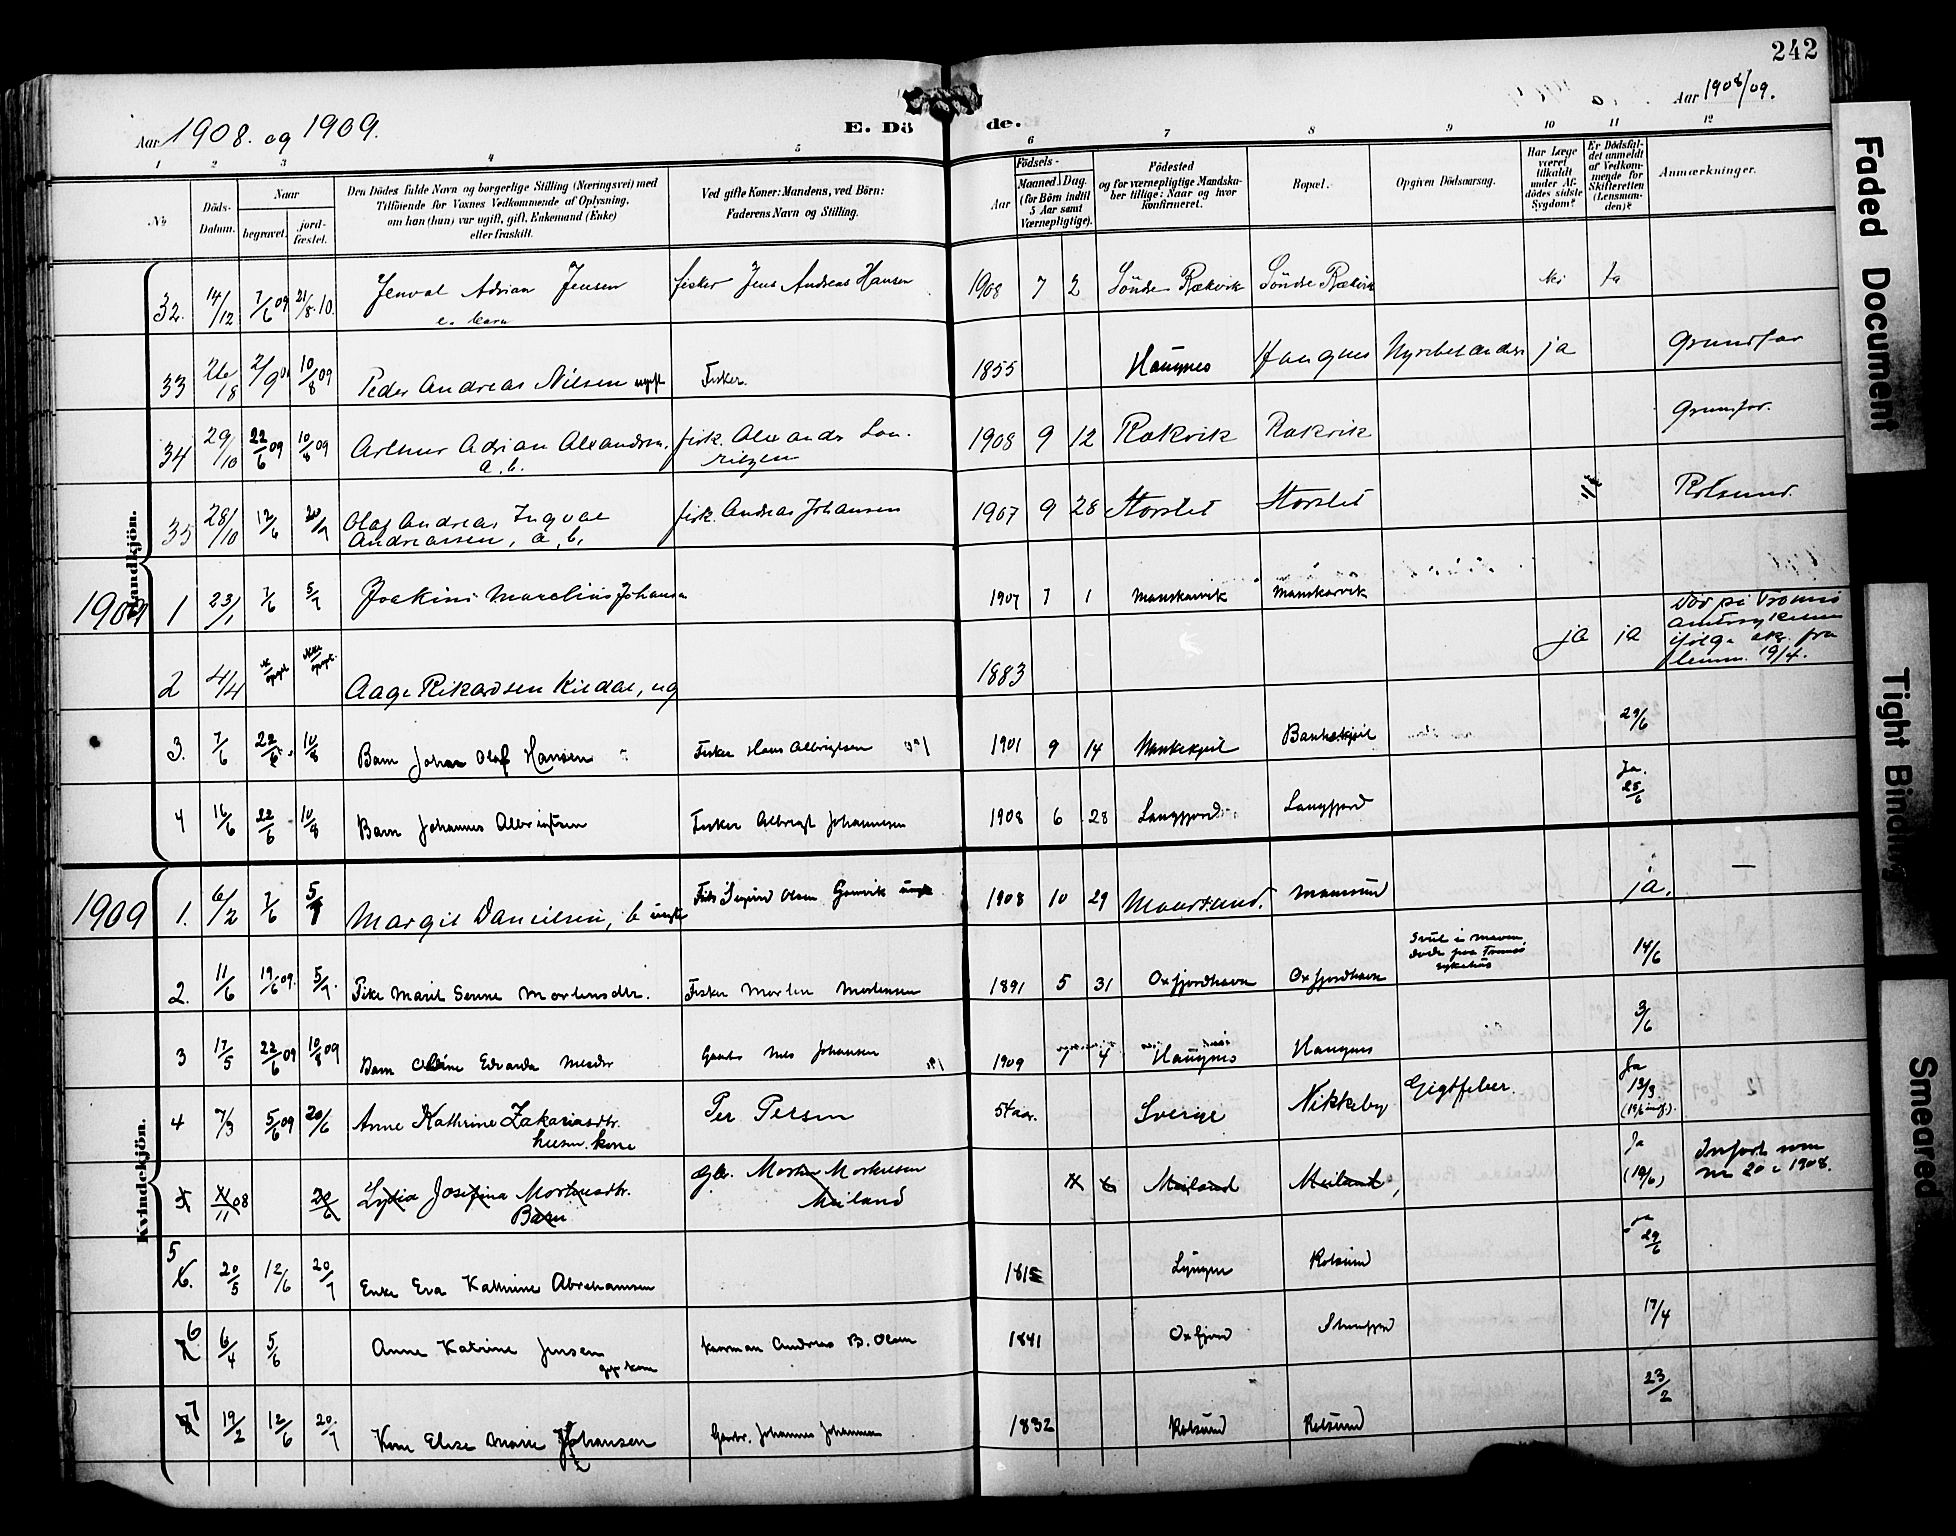 242
Aar 1908. og 1909.
E. Dö de.
Aar 1908/09.
1 2 3 4 5 6 7 8 9 10 11 12
No
Döds-Datum.
Naar
begravet.
jord-fæstet.
Den Dödes fulde Navn og borgerlige Stilling (Næringsvei) med
Tilföiende for Voxnes Vedkommende af Oplysning,
om han (hun) var ugift, gift, Enkemand (Enke)
eller fraskilt.
Ved gifte Koner: Mandens, ved Börn:
Faderens Navn og Stilling.
Födsels-
Aar
Maaned. Dag.
(for Börn indtil
5 Aar samt
Værnepligtige).
Födested
og for værnepligtige Mandska-
ber tillige: Naar og hvor
konfirmeret.
Bopæl.
Opgiven Dödsaarsag.
Har Læge
været
tilkaldt
under Af-
dödes sidste
Sygdom?
Er Dödsfal-
det anmeldt
af Vedkom-
mende for
Skifteretten
(Lensman-
den)?
Anmærkninger.
Mandkjön.
32. 14/12 7/6 09 21/8.10. Jenval Adrian Jensen fisker Jens Andreas Hansen 1908 7 2 Söndre Rækvik Söndre Rækvik Nei Ja
33 10/8 09 Peder Andreas Nilsen ugift Fisker. 1855 Haugnes Haugnes ja
34 29/10 22/6 09 10/8 09 Arthur Adrian Alexandersen, fisk. Alexander Lau- 1908 9 12 Rakvik Rakvik
a. b. ritzen
35 28/10 12/6 20/7 Olaf Andreas Ingval fisk. Andreas Johansen 1907 9 28 Storslet Storslet Rotsund.
Andreassen, a. b.
1909 1 23/1 7/6 5/7 Joakim Marelius Johansen 1907 7 1 Manskarvik Manskarvik
2 4/4 Aage Rikardsen Kildal, ug 1883 ja ja Död på Tromsö
19/4.
3. 7/6 22/6 10/8 Barn Johan Olaf Hansen Fisker Hans Albrigtsen 1901 9 14 29/6
4 16/6 22/6 10/8 Barn Johannes Albrigtsen Fisker Albrigt Johannesen 1908 6 28 Langfjord Langfjord Ja. 25/6
Kvindekjön.
1909 1. 6/2 7/6 5/7 Margit Danielsen, b Sigurd Olsen Gamvik 1908 10 29 Maursund. Maursund ja. —
2. 11/6 19/6 09. 5/7. Pike Marit Serine Mortensdtr. Fisker Morten Mortensen 1891 5 31 Oxfjordhavn Oxfjordhavn Svul i maven 14/6
döde paa Tromsö
sykehus
3 17/5 22/6 09 10/8 09 Barn Edvarda Nilsdtr Gaardbr Nils Johansen 1909 4 Haugnes Haugnes 3/6
4 7/3 5/6 09 20/6 Anne Kathrine Zakariasdtr. Per Persen 54 aar. Sverige Nikkeby Gigtfeber. Ja 13/3
husm. kone
11 08 20/6 Lydia Josefina Mortensdtr. Gbr. Morten Mortensen Meiland Meiland, Ja (19/6) Indfört som
Barn Meiland no 20 i 1908.
5 6. 20/5 12/6 20/7 Enke Eva Kathrine Abrahamsen 1815 Lyngen Rotsund ja 29/6
6 7 6/4 5/6 Anne Katrine Jensen kaarman Andreas B. Olsen 1841 Oxfjord 17/4
gift kone
7 8 19/2 12/6 20/7 Kone Elise Marie Johansen Gaardbr. Johannes Johannesen 1832 Rotsund Rotsund 23/2
Faded Document
Tight Binding
Smeared